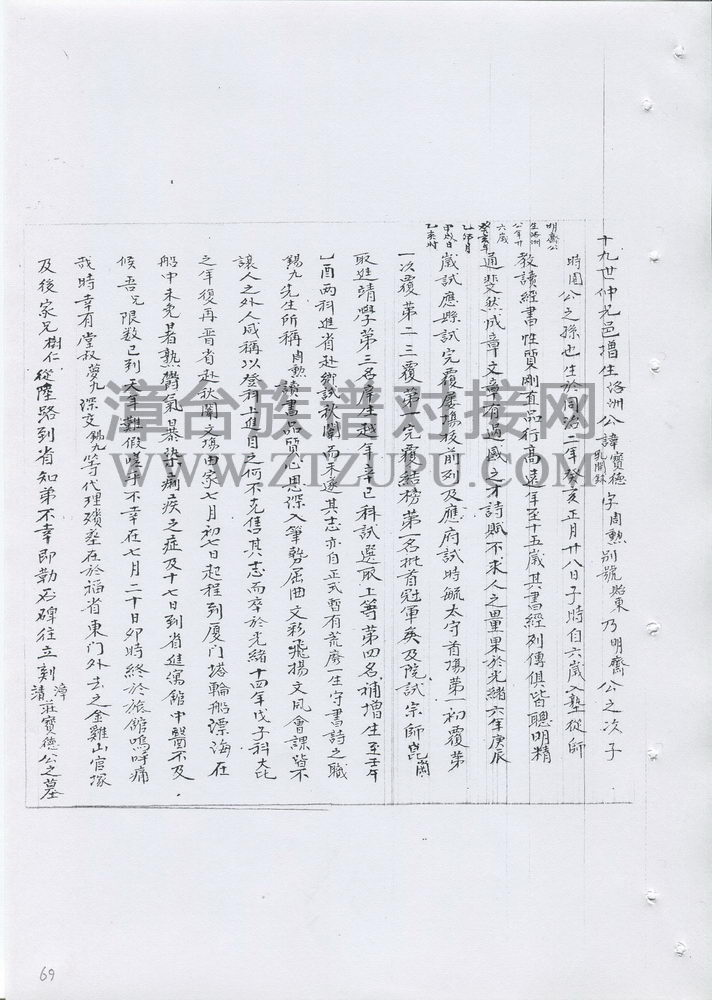 十九世仲尤邑增生洛洲公諱寶德字周勲別號照東乃明齋公之次子
時園公之孫也生於同治二年癸亥正月廿八日子時自六歲入塾從師
明齋公
生洛洲
公年廿
六歲
癸亥年
乙卯月
甲戌日
乙亥時
教讀經書性質剛直品行高遠年至十五歲其書經列傳俱皆聰明精
通斐然成章文章有過國之才詩賦不求人之量果於光緒六年庚辰
歲試應縣試完覆屢塲枝前列及應府試時毓太守首塲第一初覆第
一次覆第二三覆第一完覆結榜第一名批首冠軍矣及院試宗師崑岡
取進靖學第三名庠生越年辛巳科試選取上等第四名補增生至壬午
乙酉兩科進省赴鄉試秋闈而未遂其志亦自正式暫有荒廢一生守書詩之職
錫九先生所稱周勲讀書品質心思深入筆勢屈曲文彩飛揚文風會課皆不
讓人之外人咸稱以登科上進目之何不克售其志而卒於光緒十四年戊子科大比
之年復再晉省赴秋闈文塲由家七月初七日起程到厦门塔輪船漂海在
船中未免暑熟鬱氣暴染痢疾之症及十七日到省進寓館中醫不及
候吾兄限数已到天年難假嗟乎不幸在七月二十日卯時終於旅館嗚呼痛
哉時幸有堂叔夢九深交錦九等代理殯塟在於福省東门外去之金雞山官塚
及後家兄樹仁從陸路到省知弟不幸即勒石碑往立刻漳清莊寶德公之墓
漳台族谱对接网
WWW.ZTZUPU.COM
69